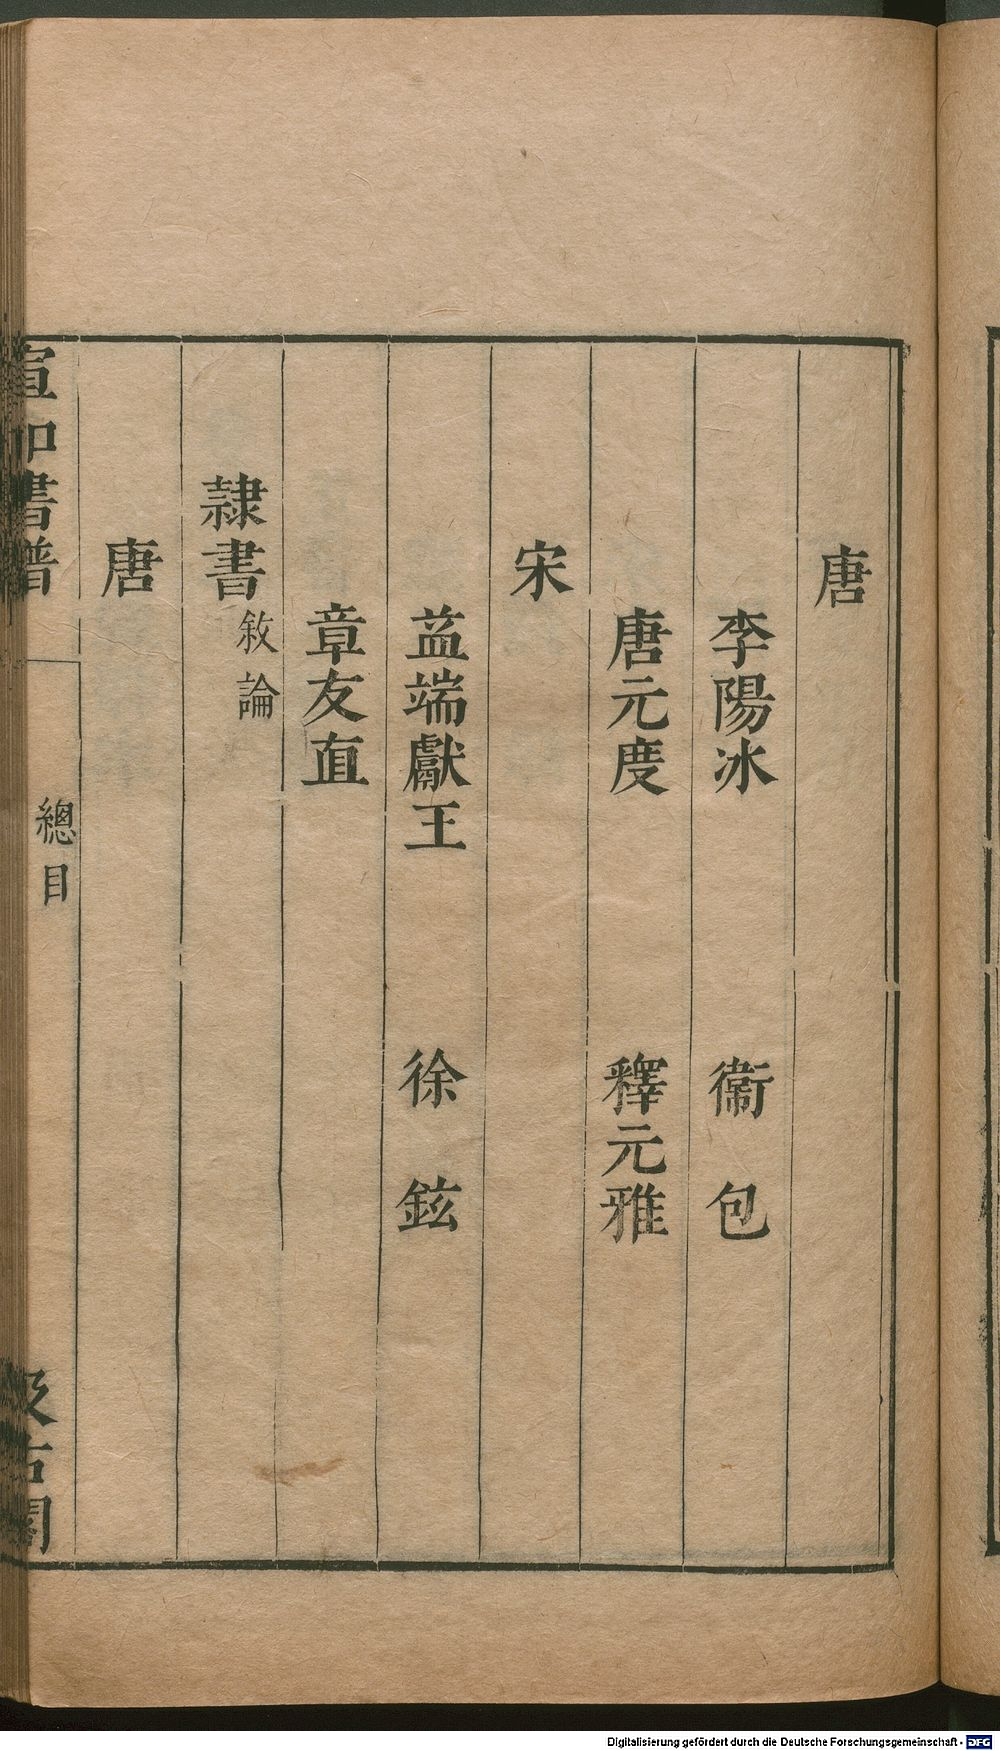 唐
李陽冰 衞包
唐元度 釋元雅
宋
葢端獻王 徐鉉
章友直
隷書 敘論
唐
宣和書譜 總目 汲古閣
Digitalisierung gefördert durch die Deutsche Forschungsgemeinschaft - DFG